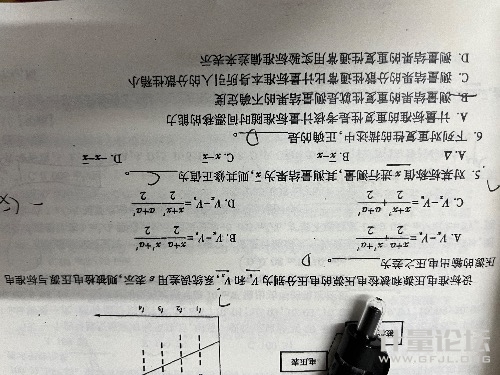 电压表
t₁ t₂ t₃ t₄
设标准电压源和被检电压源的电压分别为 Vs 和 Vx, 系统误差用 e 表示, 则被检电压源与标准电
压源的输出电压之差为 D 。
A. Vx-Vs= x+x'/2 - a+a'/2 B. Vx-Vs=
C. Vx-Vs= x+x'/2 + a+a'/2 D. Vx-Vs= x+x'/2 a+a'/2
5. 对某标称值 x 进行测量, 其测量结果为 x̄, 则其修正值为 C 。
A. Δ B. x-x C. x-x̄ D. -x-x̄
6. 下列对重复性的描述中, 正确的是 D 。
A. 计量标准的重复性是考核计量标准随时间漂移的能力
B. 测量结果的重复性就是测量结果的不确定度
C. 测量结果的分散性通常比计量标准本身所引入的分散性稍小
D. 测量结果的重复性通常用实验标准偏差来表示
计量论坛
www.gfjl.org